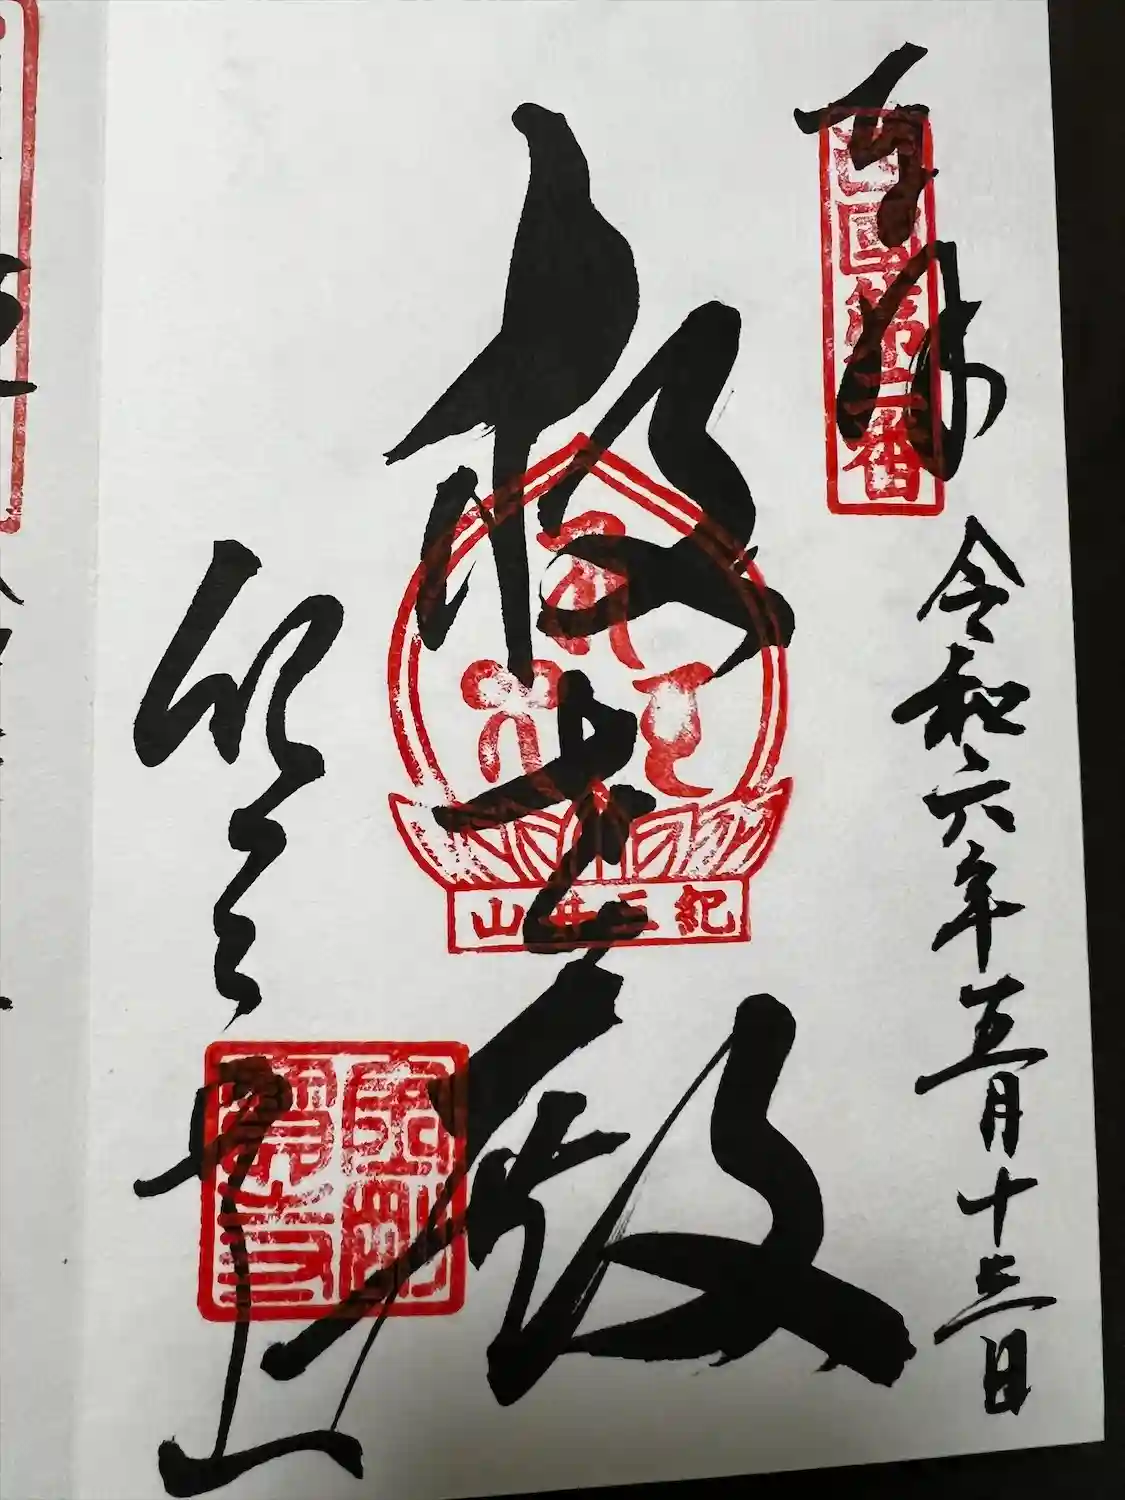 奉拝
西国第二番
令和六年五月十三日
救世殿
紀三井山
金剛寶寺
紀三井山